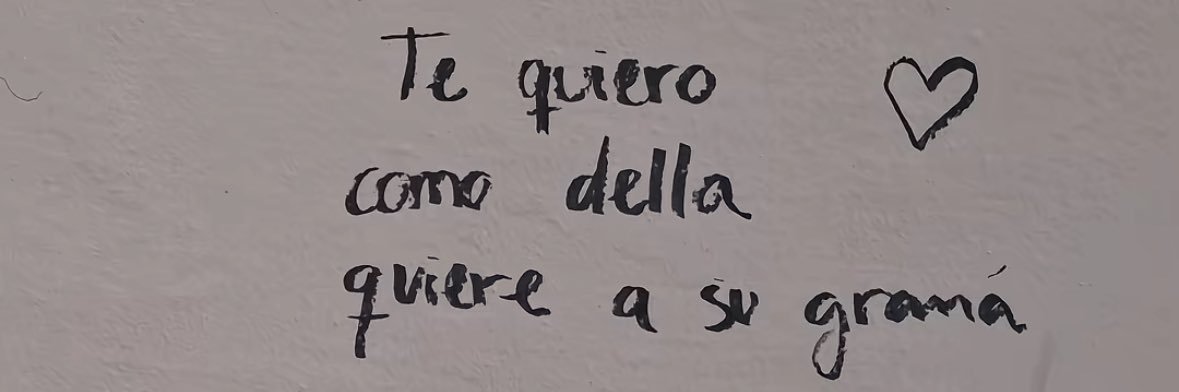 Te quiero
como della
quiere a su gramá